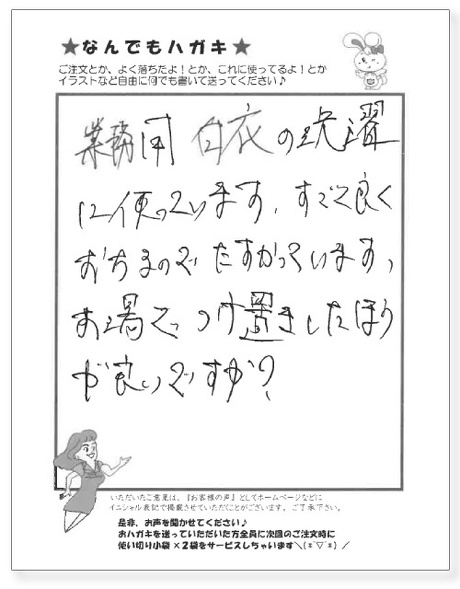 ★なんでもハガキ★
ご注文とか、よく落ちたよ！とか、これに使ってるよ！とか
イラストなど自由に何でも書いて送ってください♪
業務用 白衣の洗濯
に使っています。すごく良く
おちるので たすかっています。
お湯で つけ置きしたほう
が良いですか？
いただいたご意見は、『お客様の声』としてホームページなどに
イニシャル表記で掲載させていただことがございます。ご了承下さい。
是非、お声を聞かせてください♪
おハガキを送っていただいた方全員に次回のご注文時に
使い切り小袋×2袋をサービスしちゃいます＼(*´▽`*)／